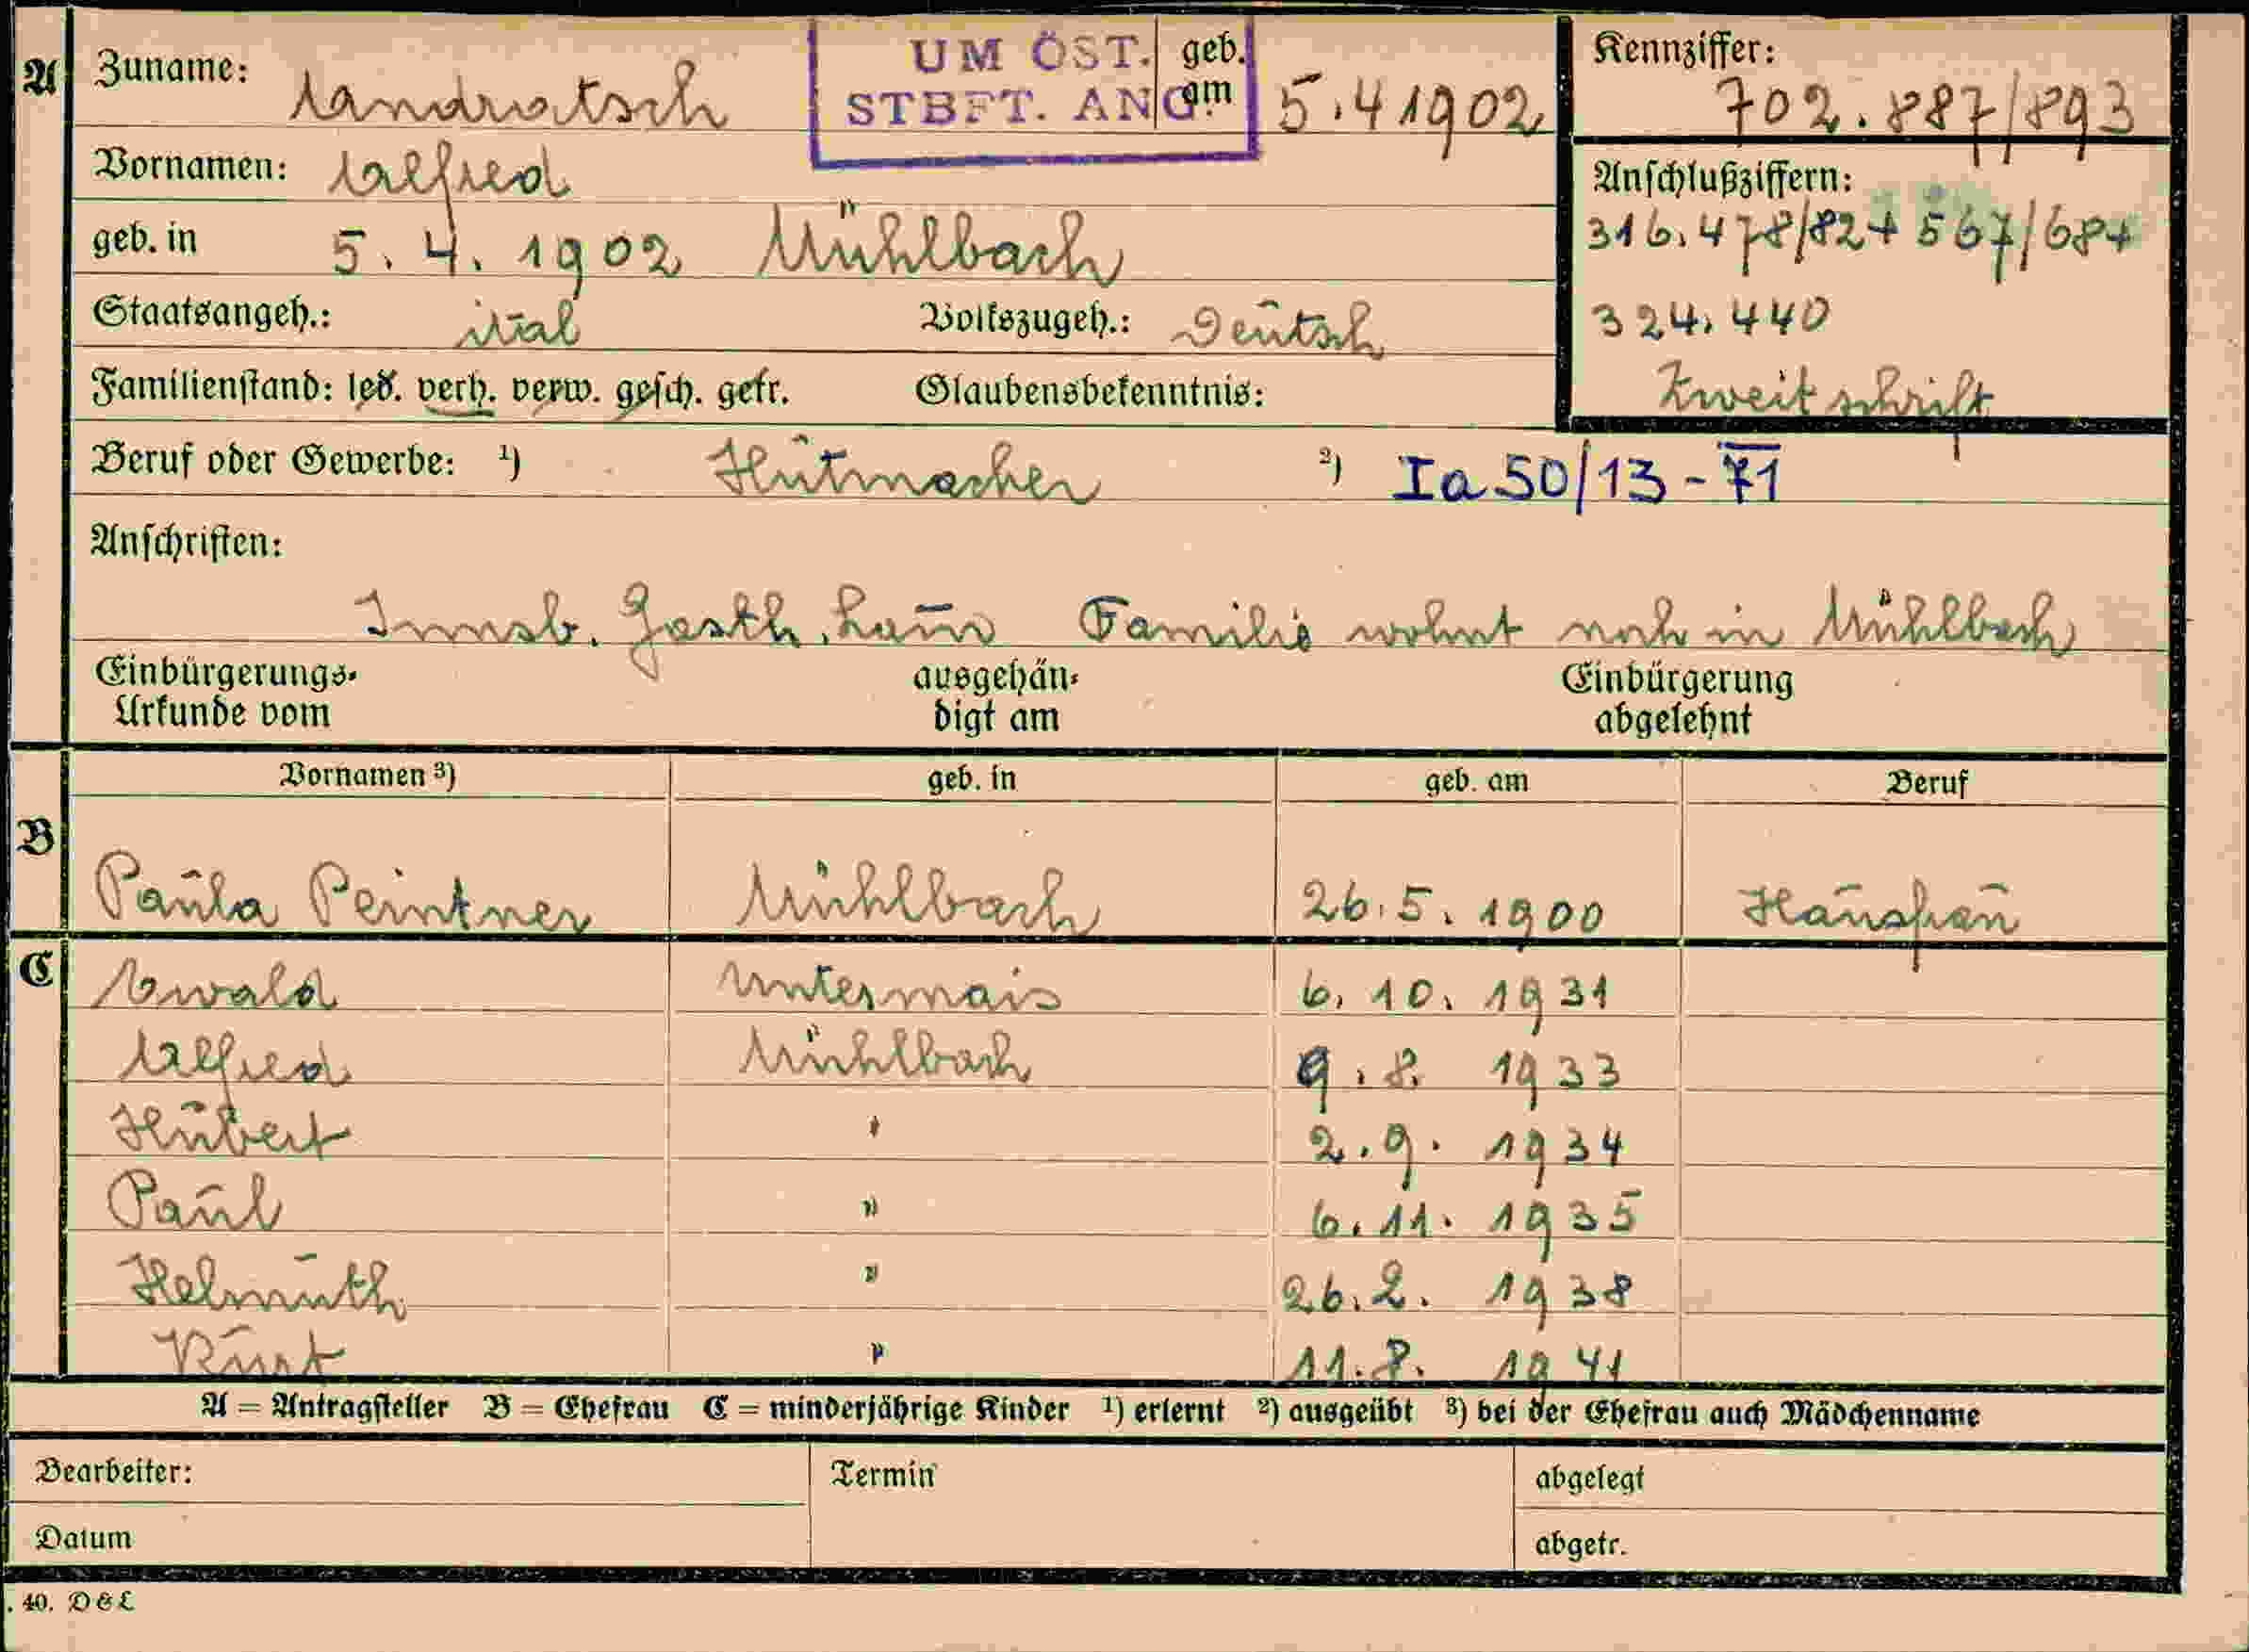 A Zuname: Andratsch UM ÖST. STBFT. ANG. geb. am 5.4 1902 Kennziffer: 702.887/893
Vornamen: Alfred Anschlußziffern:
geb. in 5.4.1902 Mühlbach 316.478/82+567/68+
Staatsangeh.: ital Volkszugeh.: Deutsch 324.440
Familienstand: led. verh. verw. gesch. getr. Glaubensbekenntnis: Zweitschrift
Beruf oder Gewerbe: ¹) Hutmacher ²) Ia 50/13-71
Anschriften:
Innsb. Gasth. Familie wohnt noch in Mühlbach
Einbürgerungs- ausgehän- Einbürgerung
Urkunde vom digt am abgelehnt
Vornamen ³) geb. in geb. am Beruf
B Paula Peintner Mühlbach 26.5.1900 Hausfrau
C Ewald Untermais 6.10.1931
Alfred Mühlbach 9.8. 1933
Hubert " 2.9. 1934
Paul " 6.11. 1935
Helmuth " 26.2. 1938
Kurt " 11.8. 1941
A = Antragsteller B = Ehefrau C = minderjährige Kinder ¹) erlernt ²) ausgeübt ³) bei der Ehefrau auch Mädchenname
Bearbeiter: Termin abgelegt
Datum abgetr.
. 40. D & L